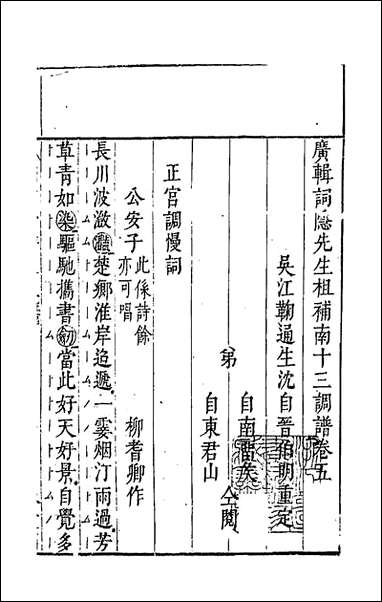 廣輯詞隱先生祖補南十三調譜卷五
吳江鞠通生沈自晉伯明重定
弟
自南留侯
自東君山
仝閱
正宮調慢詞
公安子 此係詩餘亦可唱 柳耆卿作
長川波瀲灩楚鄉淮岸迢遞一霎烟汀雨過芳
草青如染驅馳攜書劒當此好天好景自覺多